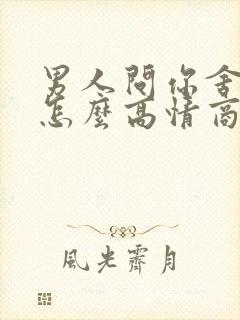 男人問你舍
怎麼高情商
風光霽月